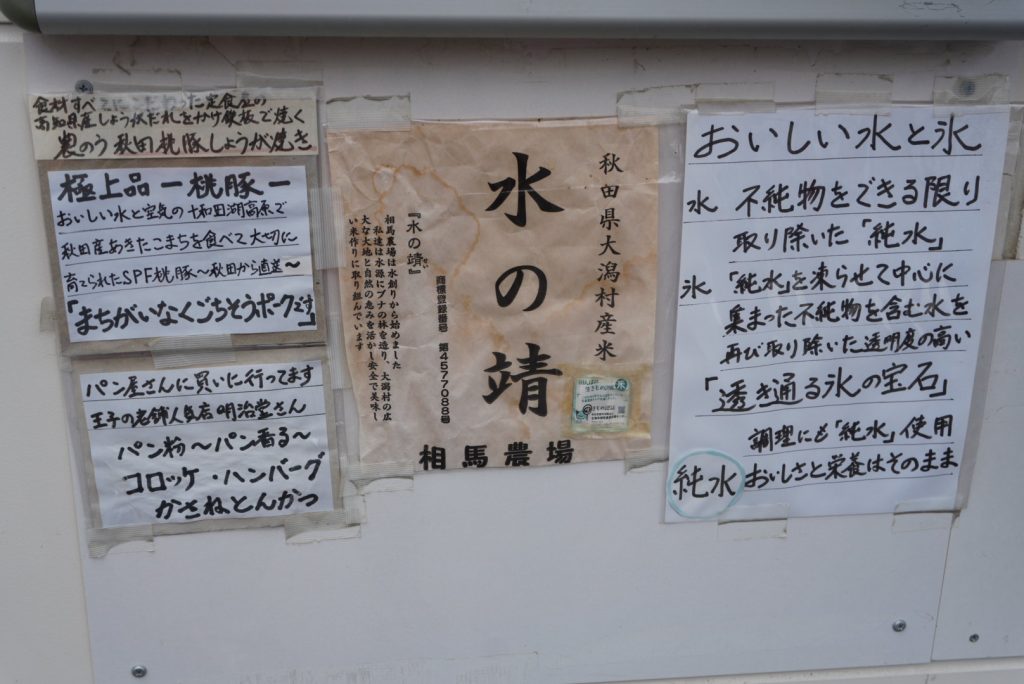 食材すべてにこだわった定食屋の
高知県産しょうがだれをかけ鉄板で焼く
農のう秋田桃豚しょうが焼き
極上品ー桃豚ー
おいしい水と空気の十和田湖高原で
秋田産あきたこまちを食べて大切に
育てられたSPF桃豚〜秋田から直送〜
「まちがいなくごちそうポークです」
パン屋さんに買いに行ってます
王子の老舗人気店明治堂さん
パン粉〜パン香る〜
コロッケ・ハンバーグ
かさねとんかつ
秋田県大潟村産米
水の靖
『水の靖』
せい
商標登録番号 第4577088号
相馬農場は水創りから始めました
私達は水源にブナの林を造り、大潟村の広
大な大地と自然の恵みを活かし安全で美味し
い米作りに取り組んでいます
相馬農場
おいしい水と氷
水 不純物をできる限り
取り除いた「純水」
氷 「純水」を凍らせて中心に
集まった不純物を含む水を
再び取り除いた透明度の高い
「透き通る氷の宝石」
調理にも「純水」使用
純水 おいしさと栄養はそのまま